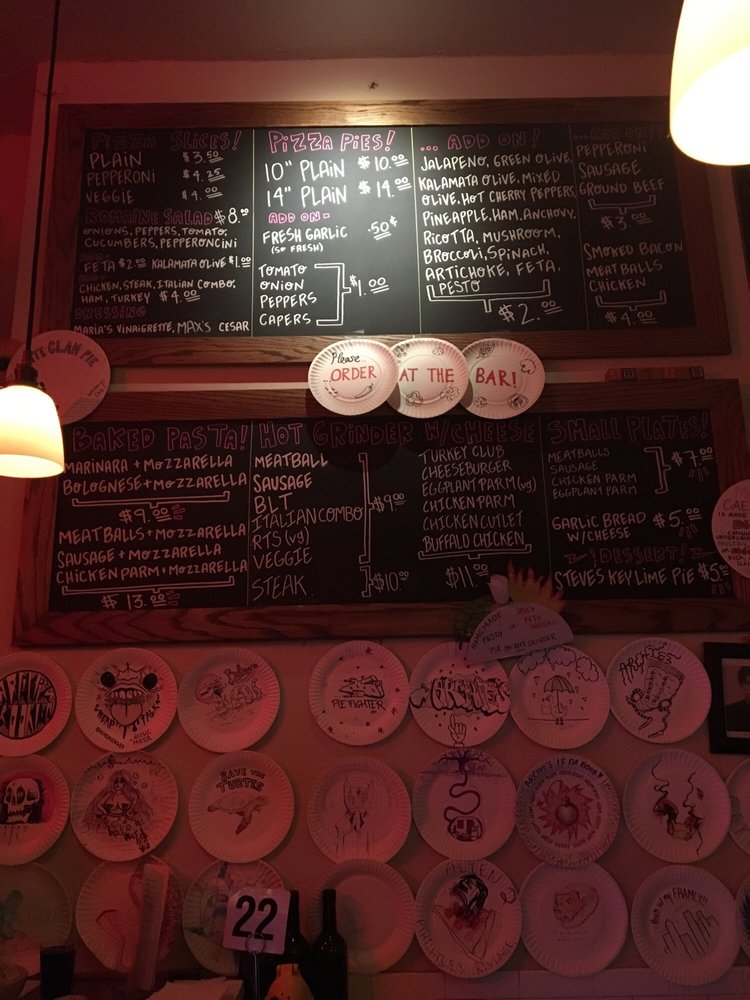 PIZZA SLICES!
PLAIN $3.50
PEPPERONI $4.25
VEGGIE $4.00
ROMAINE SALAD $8.00
ONIONS, PEPPERS, TOMATO,
CUCUMBERS, PEPPERONCINI
FETA $2.00 KALAMATA OLIVE $1.00
CHICKEN, STEAK, ITALIAN COMBO,
HAM, TURKEY $4.00
DRESSING
MARIA'S VINAIGRETTE, MAX'S CESAR
PIZZA PIES!
10" PLAIN $10.00
14" PLAIN $14.00
ADD ON-
FRESH GARLIC .50¢
(SO FRESH)
TOMATO
ONION
PEPPERS
CAPERS
$1.00
... ADD ON!
JALAPENO, GREEN OLIVE,
KALAMATA OLIVE, MIXED
OLIVE, HOT CHERRY PEPPERS,
PINEAPPLE, HAM, ANCHOVY,
RICOTTA, MUSHROOM,
BROCCOLI, SPINACH,
ARTICHOKE, FETA,
PESTO
$2.00
...ADD ON!
PEPPERONI
SAUSAGE
GROUND BEEF
$3.00
SMOKED BACON
MEATBALLS
CHICKEN
$4.00
Please...
...ORDER AT THE BAR!
BAKED PASTA!
MARINARA + MOZZARELLA
BOLOGNESE + MOZZARELLA
$9.00
MEATBALLS + MOZZARELLA
SAUSAGE + MOZZARELLA
CHICKEN PARM + MOZZARELLA
$13.00
HOT GRINDER W/CHEESE
MEATBALL
SAUSAGE
BLT
ITALIAN COMBO
RTS (vg)
VEGGIE
$9.00
STEAK $10.00
TURKEY CLUB
CHEESEBURGER
EGGPLANT PARM (vg)
CHICKEN PARM
CHICKEN CUTLET
BUFFALO CHICKEN
$11.00
SMALL PLATES!
MEATBALLS
SAUSAGE
CHICKEN PARM
EGGPLANT PARM
$7.00
GARLIC BREAD $5.00
W/CHEESE
!DESSERT!
STEVE'S KEY LIME PIE $5.00
HOMEMADE
PESTO
PIE FIGHTER
ARCHIES
SAVE THE
TURTLES
ARCHIE'S IS DA BOMB!
ALIEN 2
22